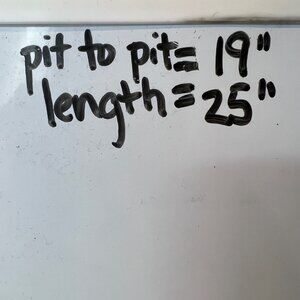 pit to pit= 19"
length= 25"